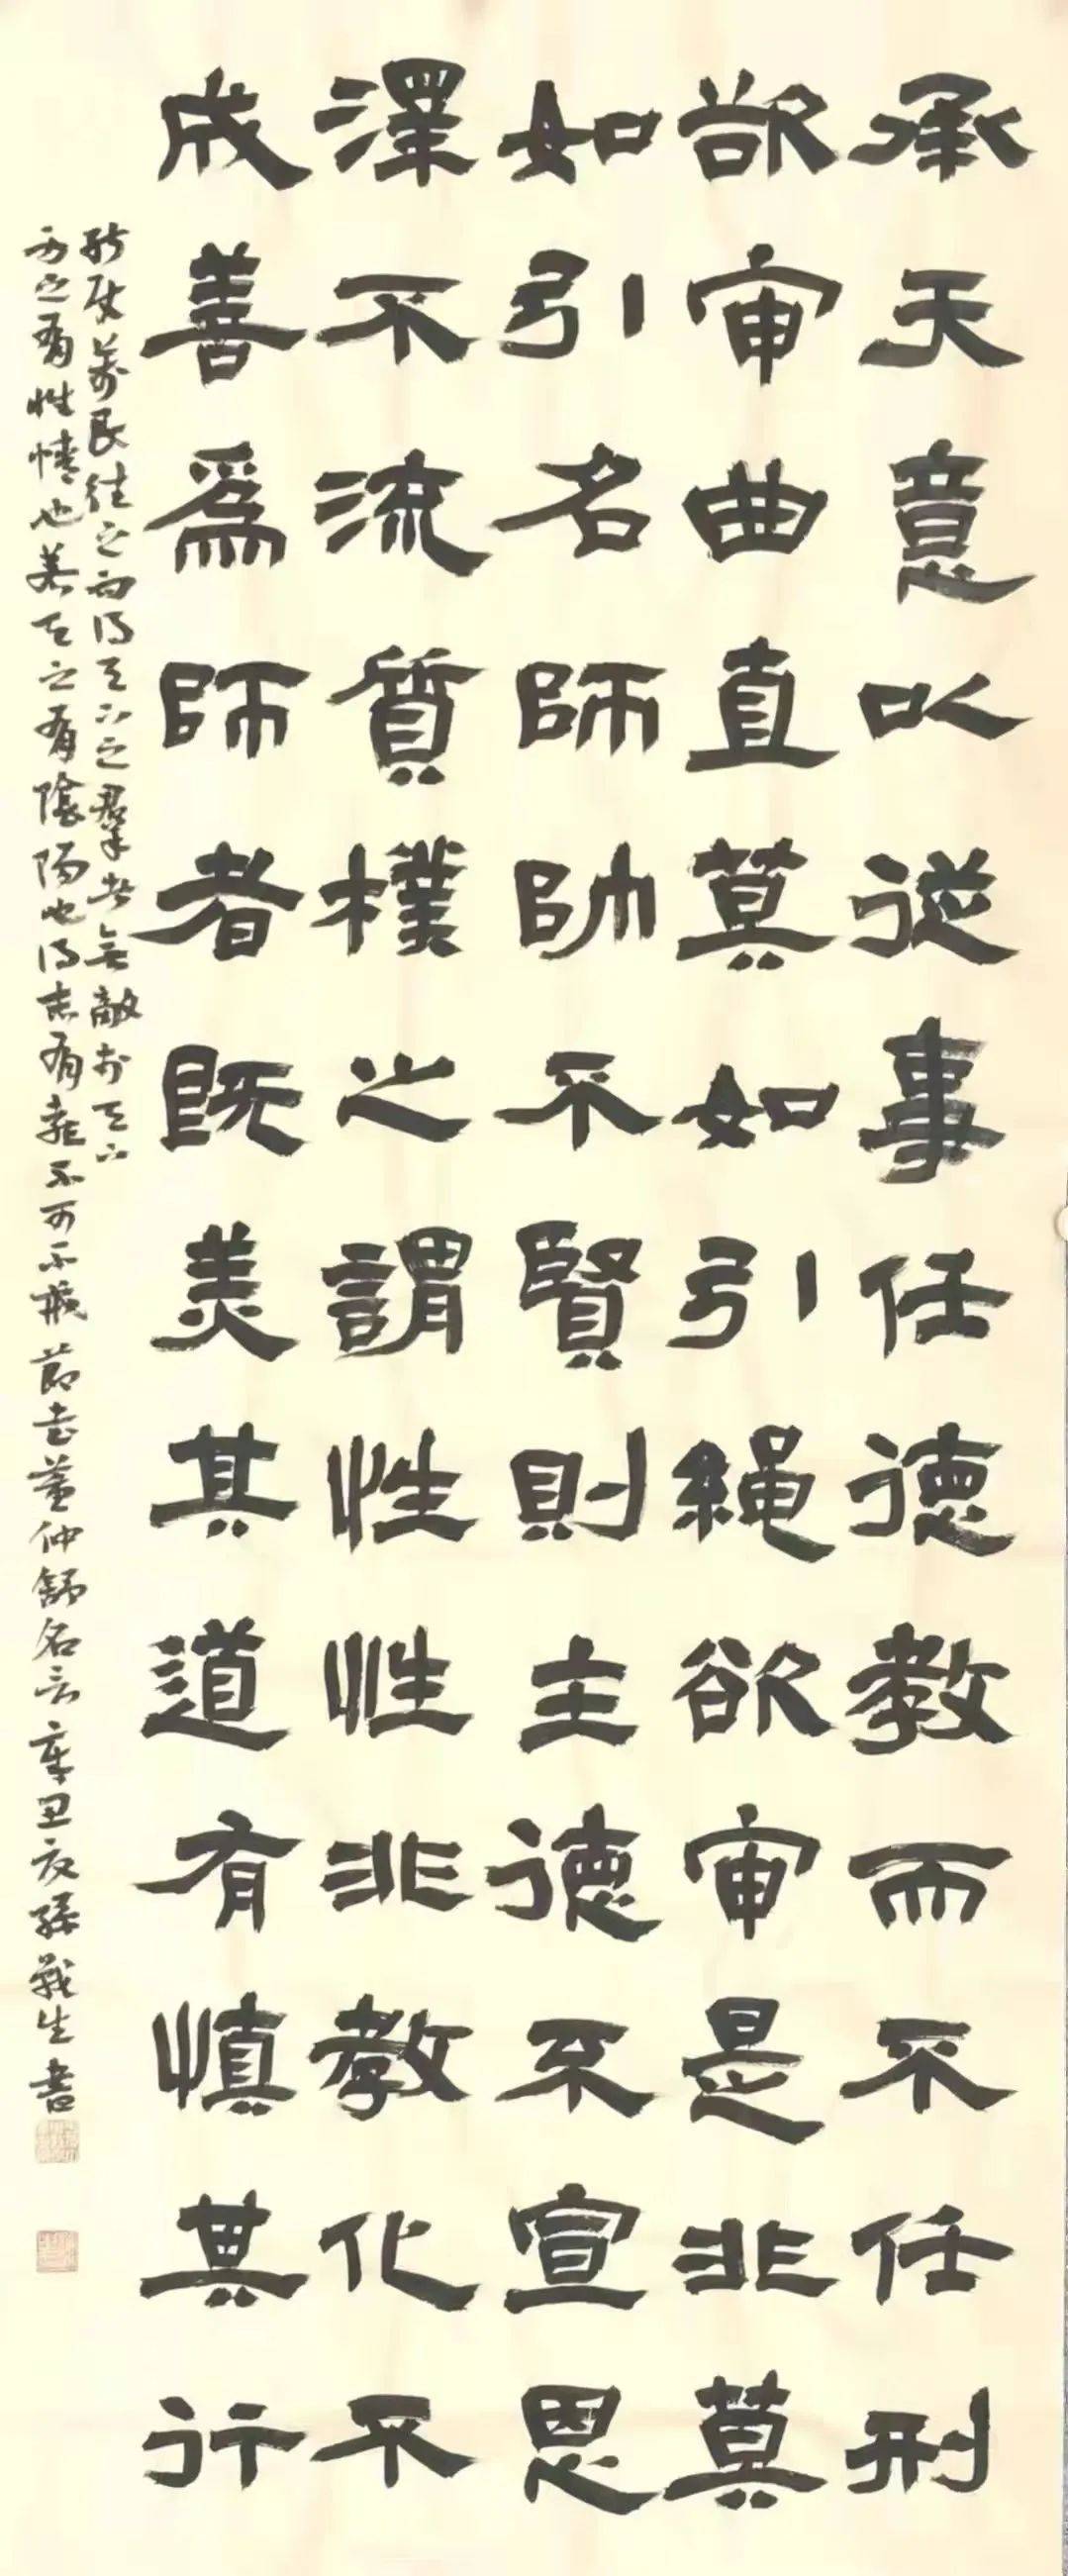 承天意以從事任德教而不任刑
欲审曲直莫如引繩欲审是非莫
如引名師帥不賢則主德不宣恩
澤不流質樸之謂性性非教化不
成善爲師者既美其道有慎其行
能使萬民往之而得天下之羣者無敵於天下
身之有性情也若天之有陰陽也得志有喜不可不戒 節書董仲舒名言 辛丑夏孫戰生書